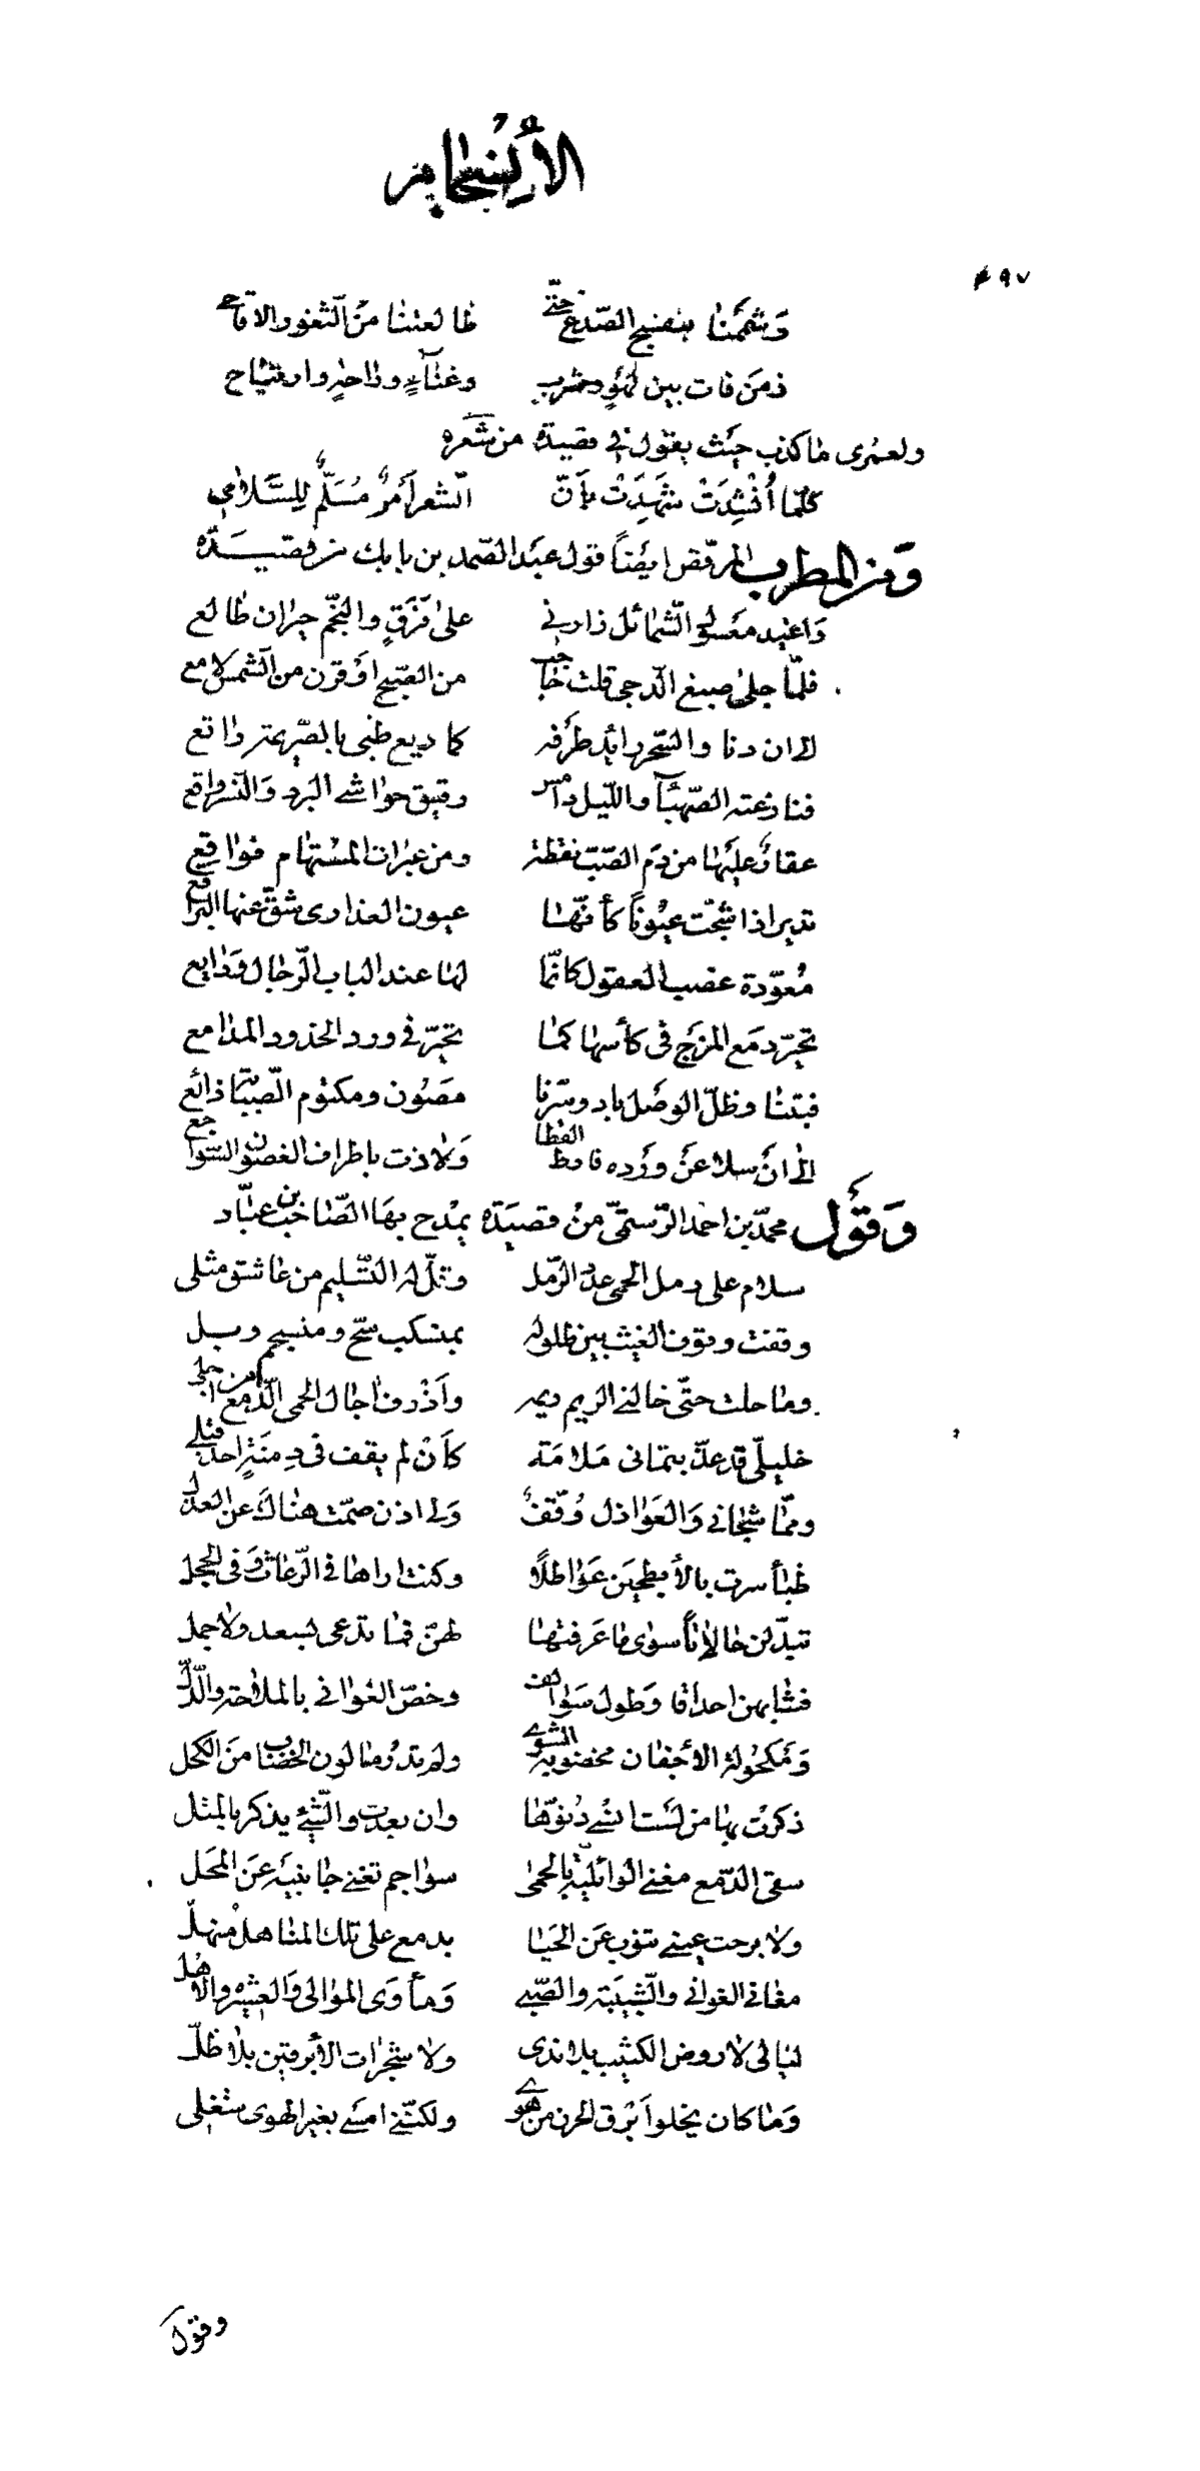 الأنسجام
٤٩٧
وشممنا بنفسج الصدغ حتّى طالعتنا من الثغور الاقاح
زمن فات بين لهوٍ وشرب وغناءٍ وراحةٍ وارتياح
ولعمرى ما كذب حيث يقول فى قصيدة من شعره
كلّما أُنْشِدَتْ شَهِدَتْ بأنّ الشعر أمرٌ مُسَلَّمٌ لِلسَّلامى
ومن المطرب المرقّص ايضاً قول عبد الصمد بن بابك من قصيدة
واغيد معسول الشمائل زارنى على فَرَقٍ والنجم حيران طالع
فلمّا جلى صبغ الدجى قلت حاجب من الصبح او قرن من الشمس لامع
الى ان دنا والسّحر رائد طرفه كما ريع ظبى بالصّريمة راتع
فنازعته الصّهباء والليل دامس رقيق حواشى البرد والنّسر واقع
عقار عليها من دم الصّبّ نفطة ومن عبرات المستهام فواقع
تدير اذا شجّت عيوناً كأنّها عيون العذارى شقّ عنها البراقع
مُعوّدة غصب العقول كانّما لها عند الباب الرّجال ودايع
تحيّر دمع المزج فى كأسها كما تحيّر فى ورد الخدود المدامع
فبتنا وظلّ الوصل باد وسرّنا مصون ومكتوم الصّبابة ذائع
الى انْ سلا عن ورْده فارط القطا ولاذت باطراف الغصون السّواجع
وقول محمّد بن احمد الرّستمىّ من قصيدة يمدح بها الصّاحب بن عبّاد
سلام على رمل الحمى عدد الرّمل وقلّ له التّسليم من عاشق مثلى
وقفت وقوف الغيث بين طلوله بمنسكب سحّ ومنسجم وبل
وما حلت حتّى خالنى الريم ريمه واذرف آجال الحمى الدّمع من اجلى
خليلىّ قد عذّبتمانى ملامة كأن لم يقف فى دِمنَةٍ احد قبلى
وممّا شجانى والعواذل وُقّفٌ ولى اذن صمّت هناك عن العذل
ظباً سرت بالأبطحين عواطلاً وكنت اراها فى الرّعاث وفى الحجل
تبدّلن حالاً سوى ما عرفتها لهنّ فما تدعى لسعد ولا جمل
فشابهن احداقا وطول سوالف وخصّ الغوانى بالملاحة والدّلّ
ومكحولة الأجفان مخضوبة الشّوى ولم تدر ما لون الخضاب من الكحل
ذكرت بها من لست انسى دنوّها وان بعدت والشّئ يذكر بالمثل
سقى الدّمع مغنى الوائليّة بالحمى سواجم تغنى جانبيه عن المحل
ولا برحت عينى تنوب عن الحيا بدمع على تلك المناهل منهلّ
مغانى الغوانى والشّبيبة والصّبى ومأوى الموالى والعشيرة والاهل
ليالى لا روض الكثيب بلا ندى ولا شجرات الأبرقين بلا ظلّ
وما كان يخلو ابرق الحزن من هوى ولكنّنى امسى بغير الهوى شغلى
وقول